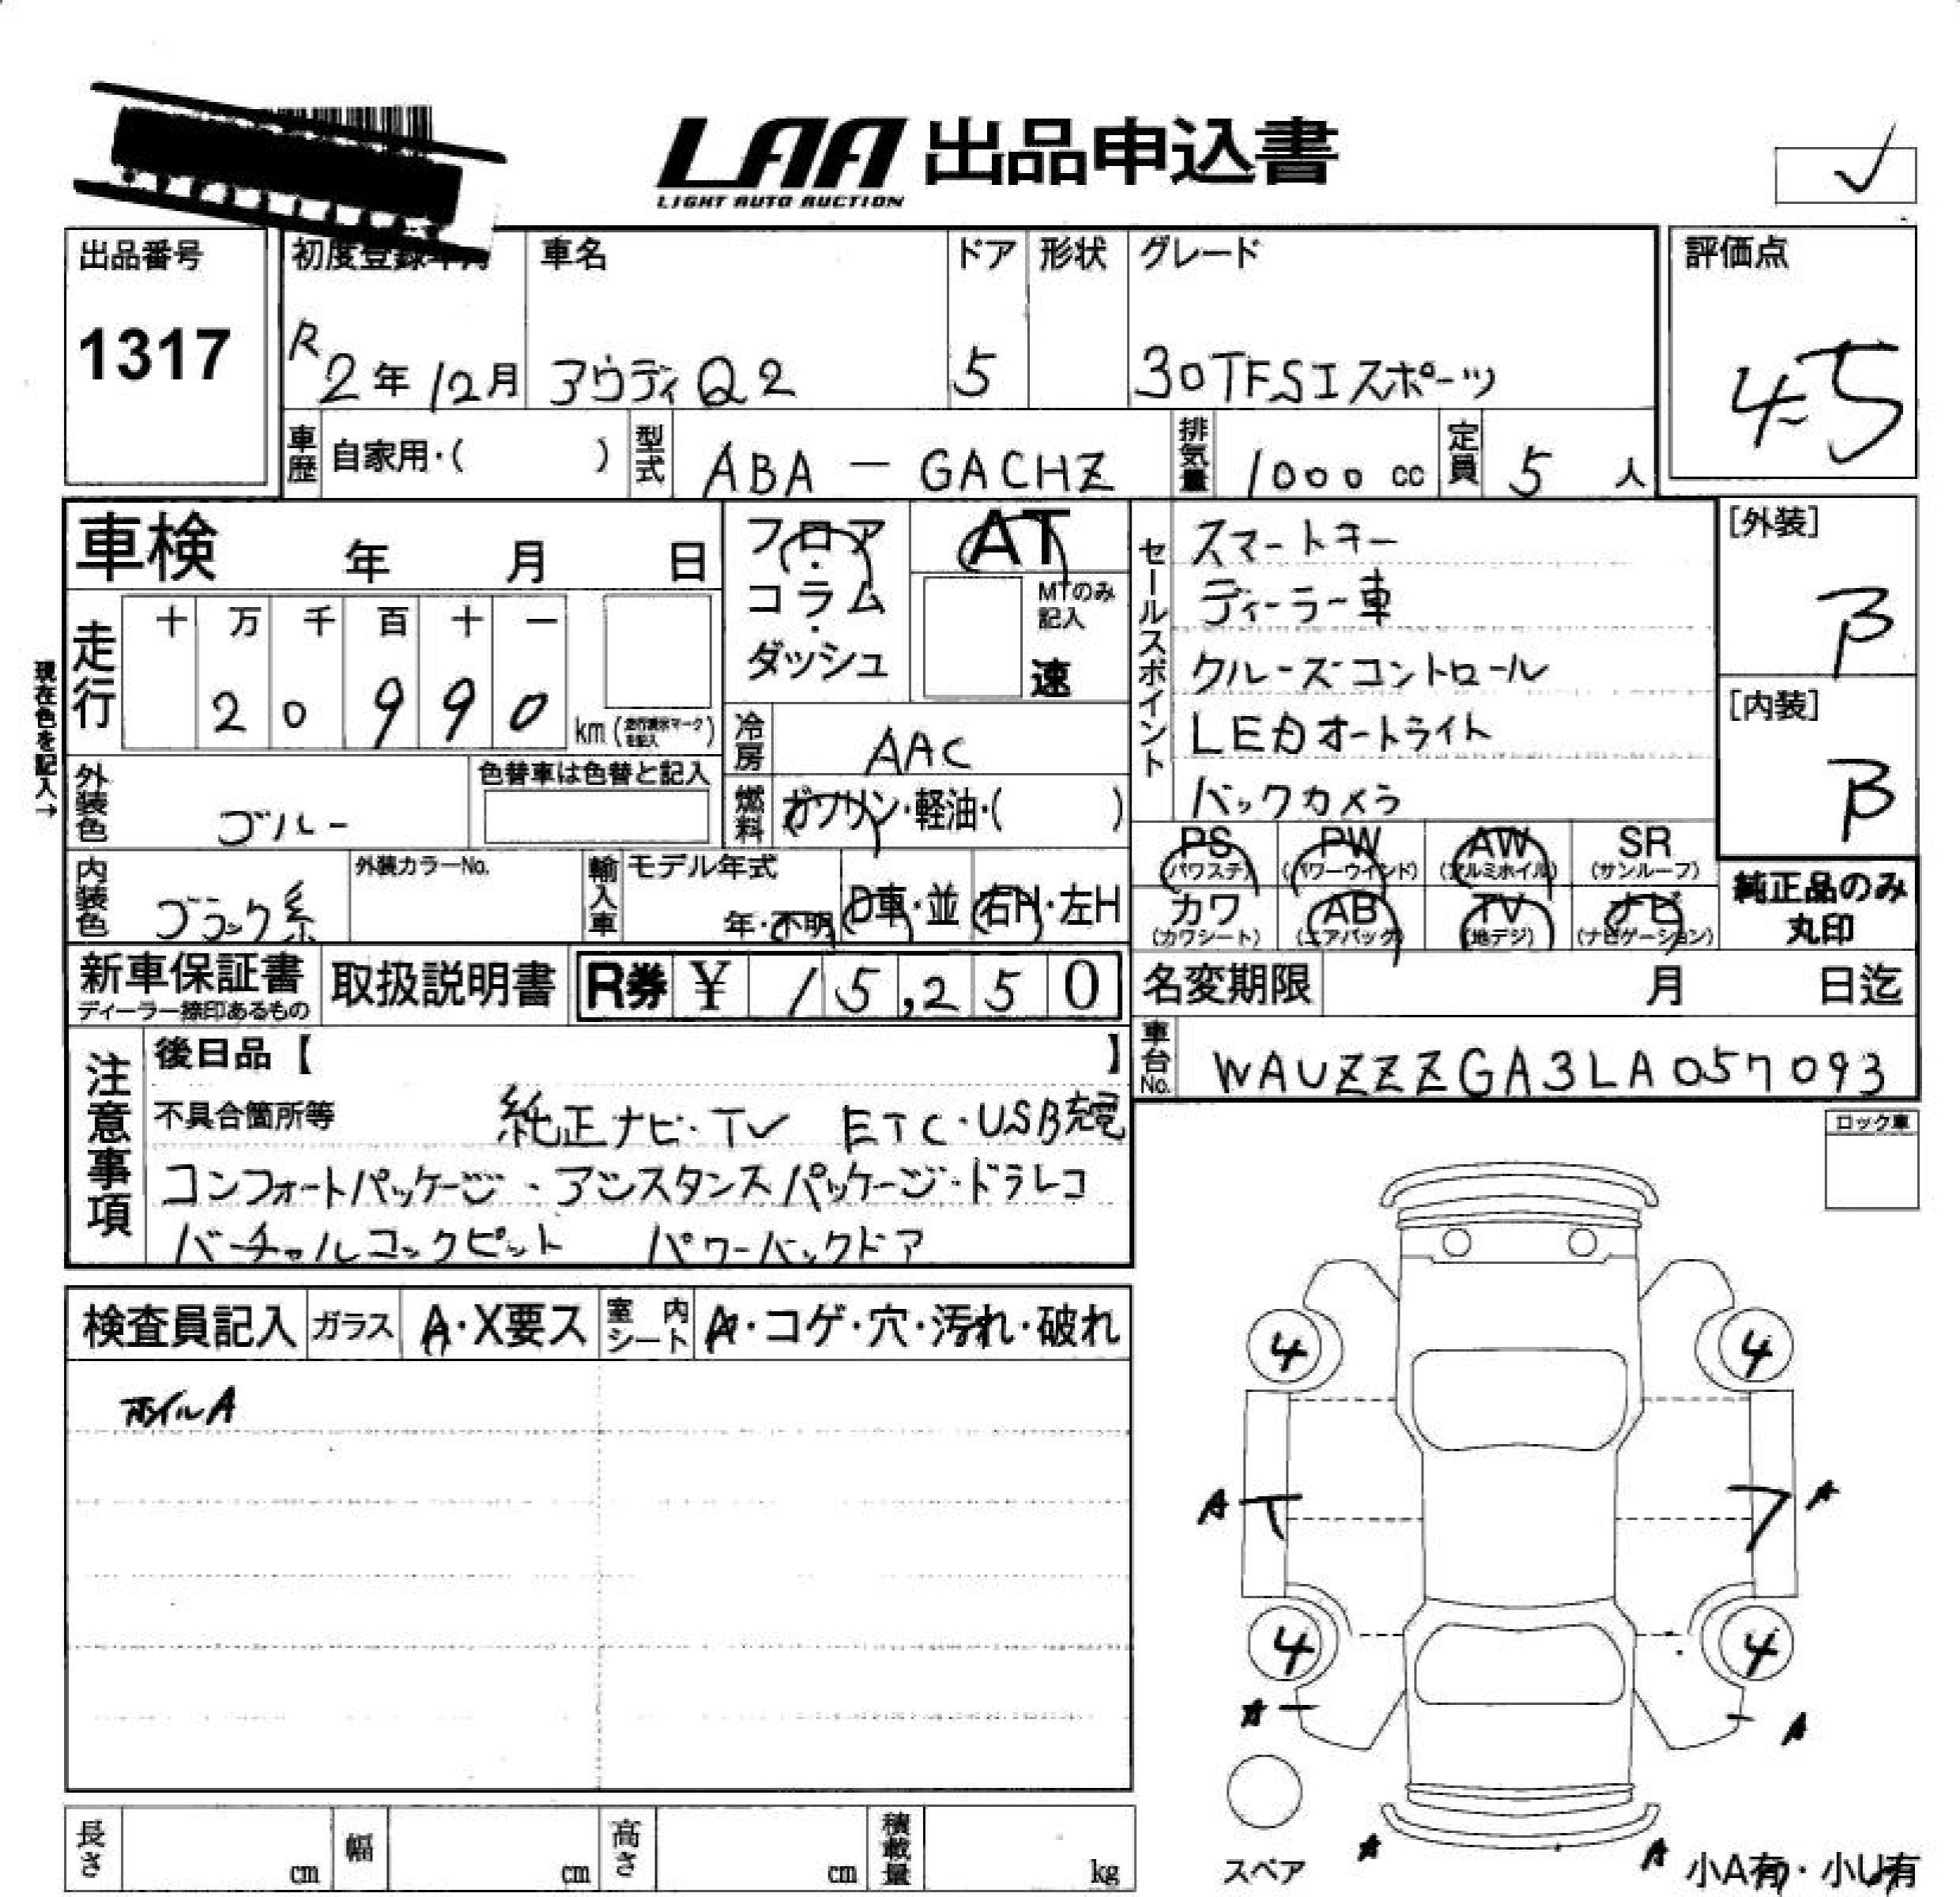 LAA 出品申込書
LIGHT AUTO AUCTION
出品番号 初度登録年月 車名 ドア 形状 グレード 評価点
1317 R2年12月 アウディQ2 5 30TFSIスポーツ 4.5
車歴 自家用・( ) 型式 ABA-GACHZ 排気量 1000cc 定員 5人
車検 年 月 日
フロア・コラム・ダッシュ
AT
MTのみ記入
速
セールスポイント
スマートキー
ディーラー車
クルーズコントロール
LEDオートライト
バックカメラ
[外装]
B
[内装]
B
現在色を記入→
走行 十 万 千 百 十 一
2 0 9 9 0 km
冷房 AAC
外装色 ブルー 色替車は色替と記入
燃料 ガソリン・軽油・( )
内装色 ブラック系 外装カラーNo. 輸入車 モデル年式 年・不明 D車・並 右H・左H
PS (パワステ) PW (パワーウインド) AW (アルミホイル) SR (サンルーフ)
カワ (カワシート) AB (エアバッグ) TV (地デジ) ナビ (ナビゲーション)
純正品のみ丸印
新車保証書 ディーラー捺印あるもの 取扱説明書 R券 ¥ 15,250
名変期限 月 日迄
車台No. WAUZZZGA3LA057093
注意事項
後日品【 】
不具合箇所等 純正ナビ・TV ETC・USB充電
コンフォートパッケージ・アシスタンスパッケージ・ドラレコ
バーチャルコックピット パワーバックドア
ロック車
検査員記入 ガラス A・X要ス 室内シート A・コゲ・穴・汚れ・破れ
ホイルA
4 4
A A
4 4
A A
スペア
A A
小A有・小U有
長さ cm 幅 cm 高さ cm 積載量 kg